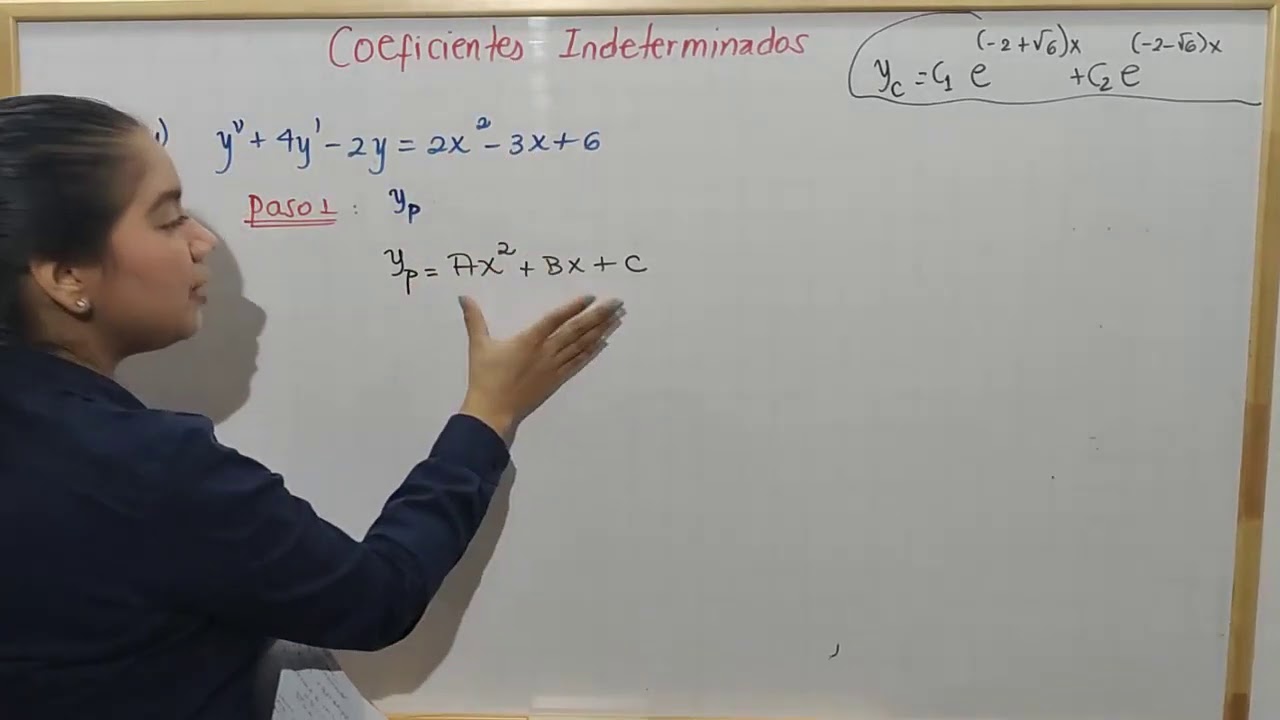 Coeficientes Indeterminados
y_c = c₁ e^(-2+√6)x + c₂ e^(-2-√6)x
) y'' + 4y' - 2y = 2x² - 3x + 6
Paso 1 : y_p
y_p = Ax² + Bx + C